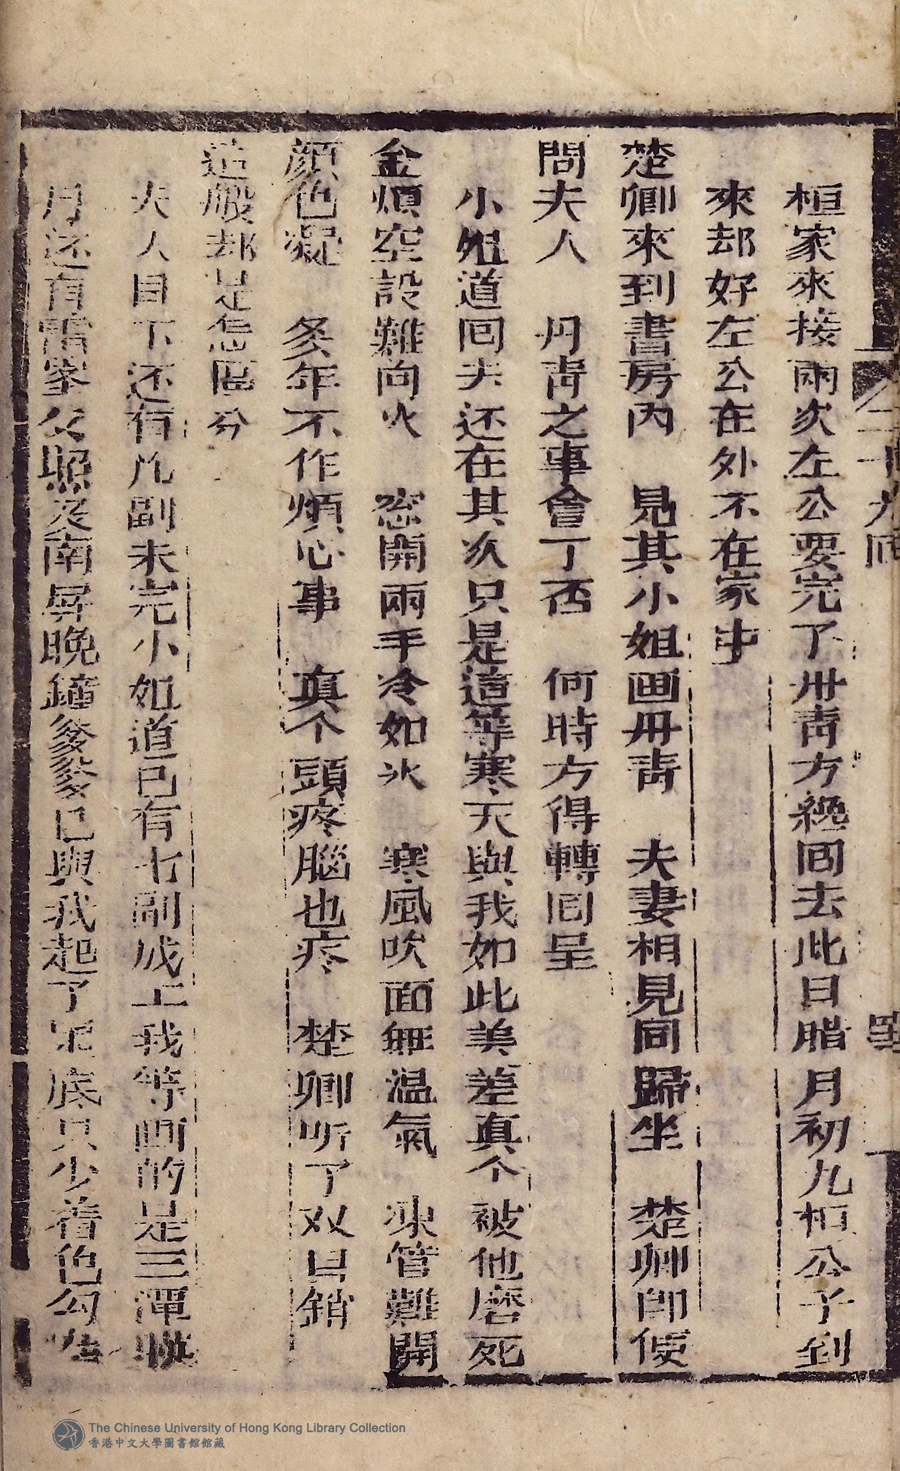 二十九回
桓家來接兩次左公要完了丹靑方纔囬去此日腊月初九桓公子到
來却好左公在外不在家中
楚卿來到書房內　見其小姐画丹靑　夫妻相見同歸坐　楚卿即便
問夫人　丹靑之事會丁否　何時方得轉囬呈
小姐道回夫还在其次只是這等寒天與我如此美差真个被他磨死
金爐空設難向火　窓開兩手冷如氷　寒風吹面無温氣　凍管難開
顔色凝　多年不作煩心事　真个頭疼腦也疼　楚卿听了双目銷
這般却是怎區分
夫人目下还有几副未完小姐道已有七副成工我等画的是三潭暎
月还有雷峯夕照及南屏晚鐘爹爹已與我起了底只少着色勾
The Chinese University of Hong Kong Library Collection
香港中文大學圖書館館藏